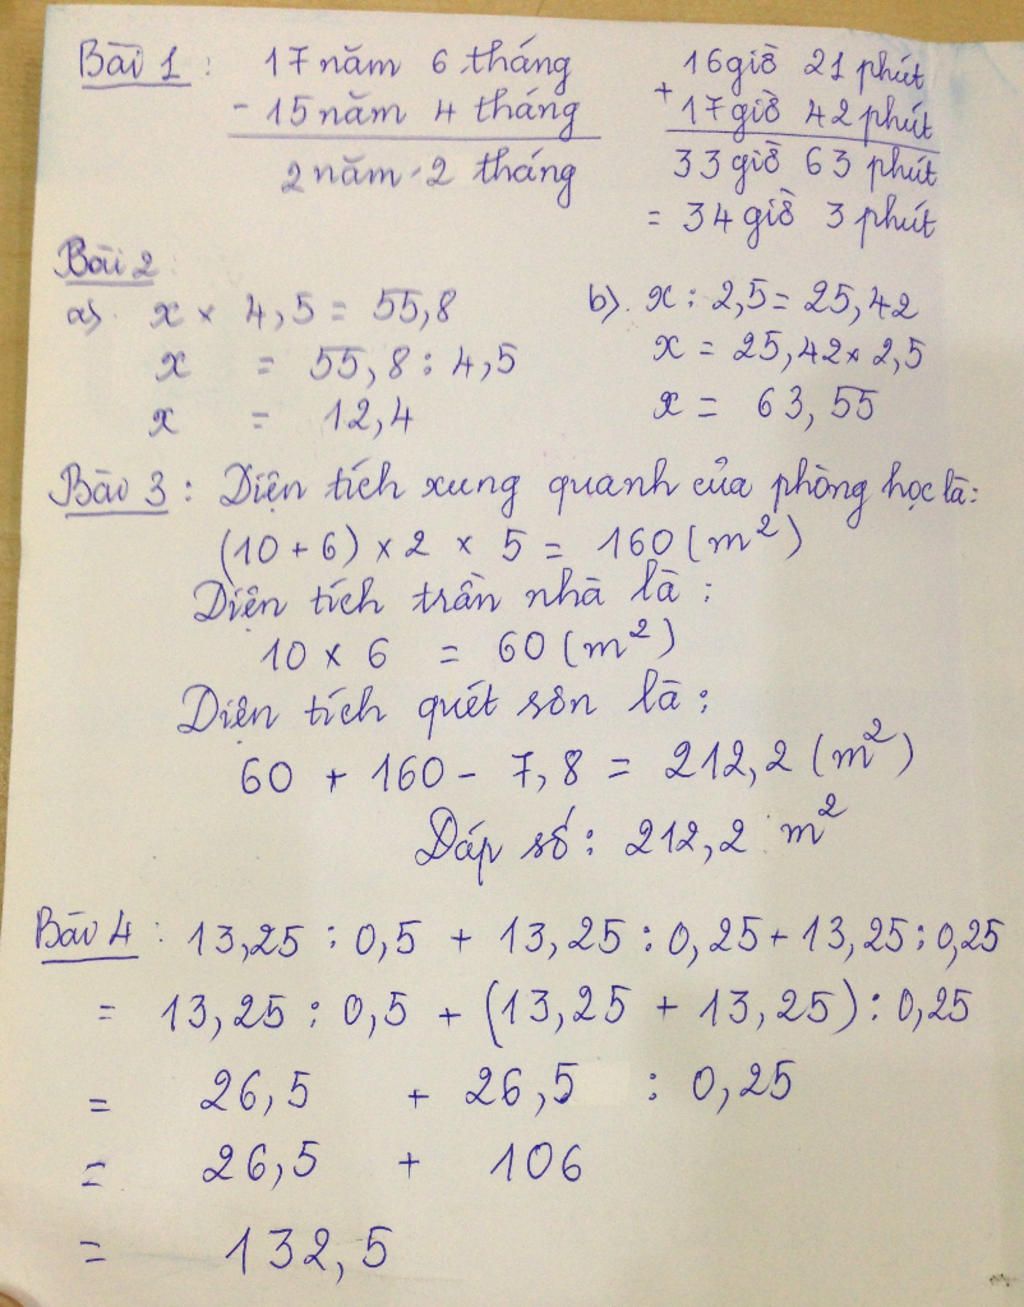 Bài 1 : 17 năm 6 tháng
- 15 năm 4 tháng
2 năm 2 tháng
16 giờ 21 phút
+ 17 giờ 42 phút
33 giờ 63 phút
= 34 giờ 3 phút
Bài 2
a) x × 4,5 = 55,8
x = 55,8 : 4,5
x = 12,4
b). x : 2,5 = 25,42
x = 25,42 × 2,5
x = 63,55
Bài 3 : Diện tích xung quanh của phòng học là:
(10 + 6) × 2 × 5 = 160 (m²)
Diện tích trần nhà là :
10 × 6 = 60 (m²)
Diện tích quét sơn là :
60 + 160 - 7,8 = 212,2 (m²)
Đáp số : 212,2 m²
Bài 4 : 13,25 : 0,5 + 13,25 : 0,25 + 13,25 : 0,25
= 13,25 : 0,5 + (13,25 + 13,25) : 0,25
= 26,5 + 26,5 : 0,25
= 26,5 + 106
= 132,5